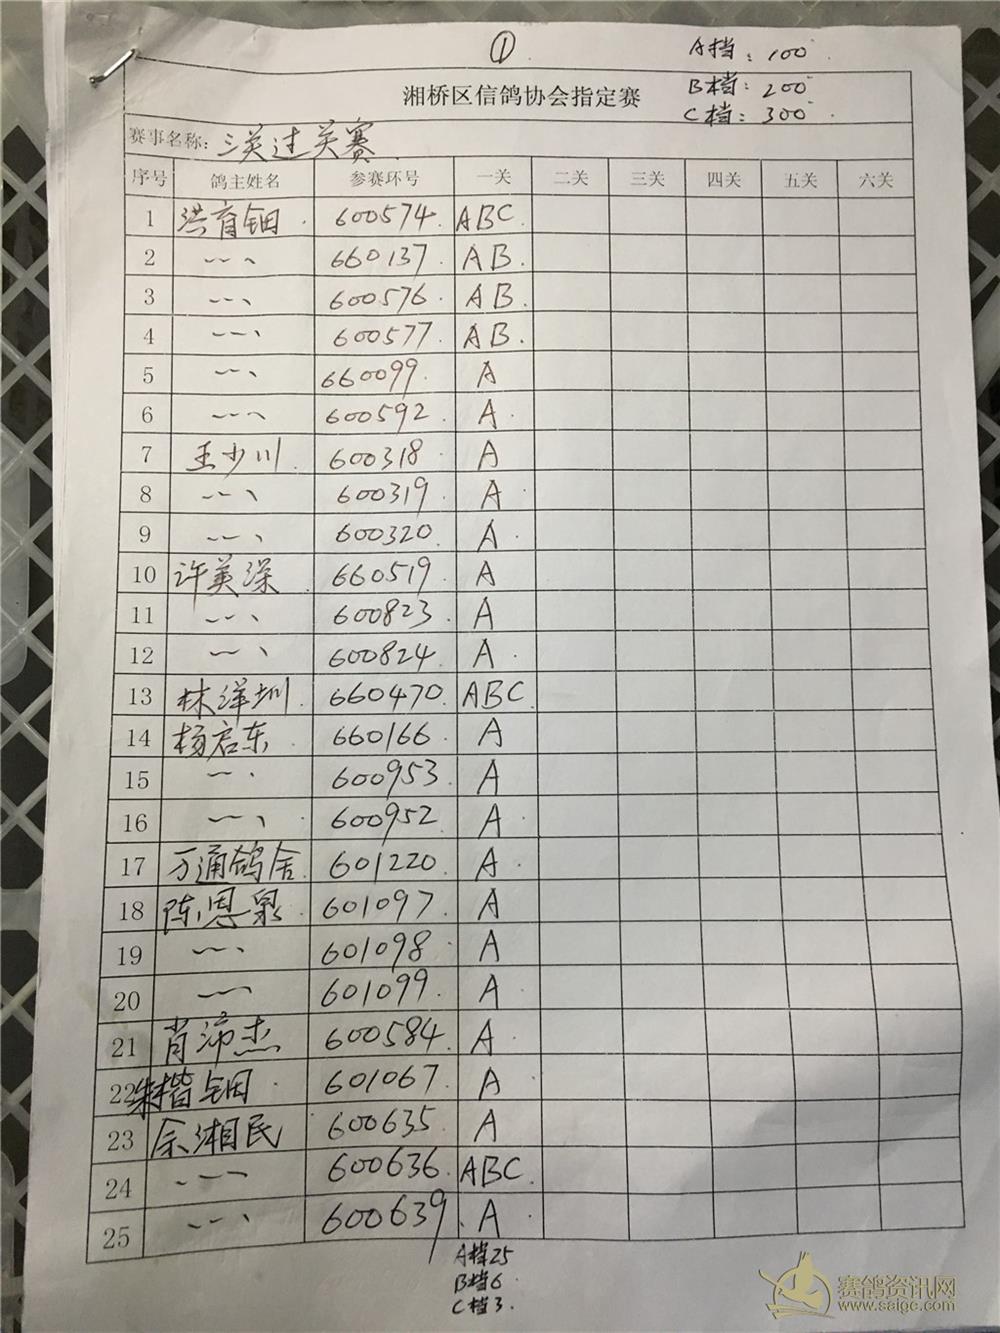 ①
A档：100
湘桥区信鸽协会指定赛 B档：200
C档：300
赛事名称：三关过关赛
序号 鸽主姓名 参赛环号 一关 二关 三关 四关 五关 六关
1 洪育钿 600574 ABC
2 〃 660137 AB
3 〃 600576 AB
4 〃 600577 AB
5 〃 660099 A
6 〃 600592 A
7 王少川 600318 A
8 〃 600319 A
9 〃 600320 A
10 许美深 660519 A
11 〃 600823 A
12 〃 600824 A
13 林洋圳 660470 ABC
14 杨启东 660166 A
15 〃 600953 A
16 〃 600952 A
17 万通鸽舍 601220 A
18 陈恩泉 601097 A
19 〃 601098 A
20 〃 601099 A
21 肖沛杰 600584 A
22 朱楷钿 601067 A
23 余湘民 600635 A
24 〃 600636 ABC
25 〃 600639 A
A档25
B档6
C档3
赛鸽资讯网
www.saigc.com